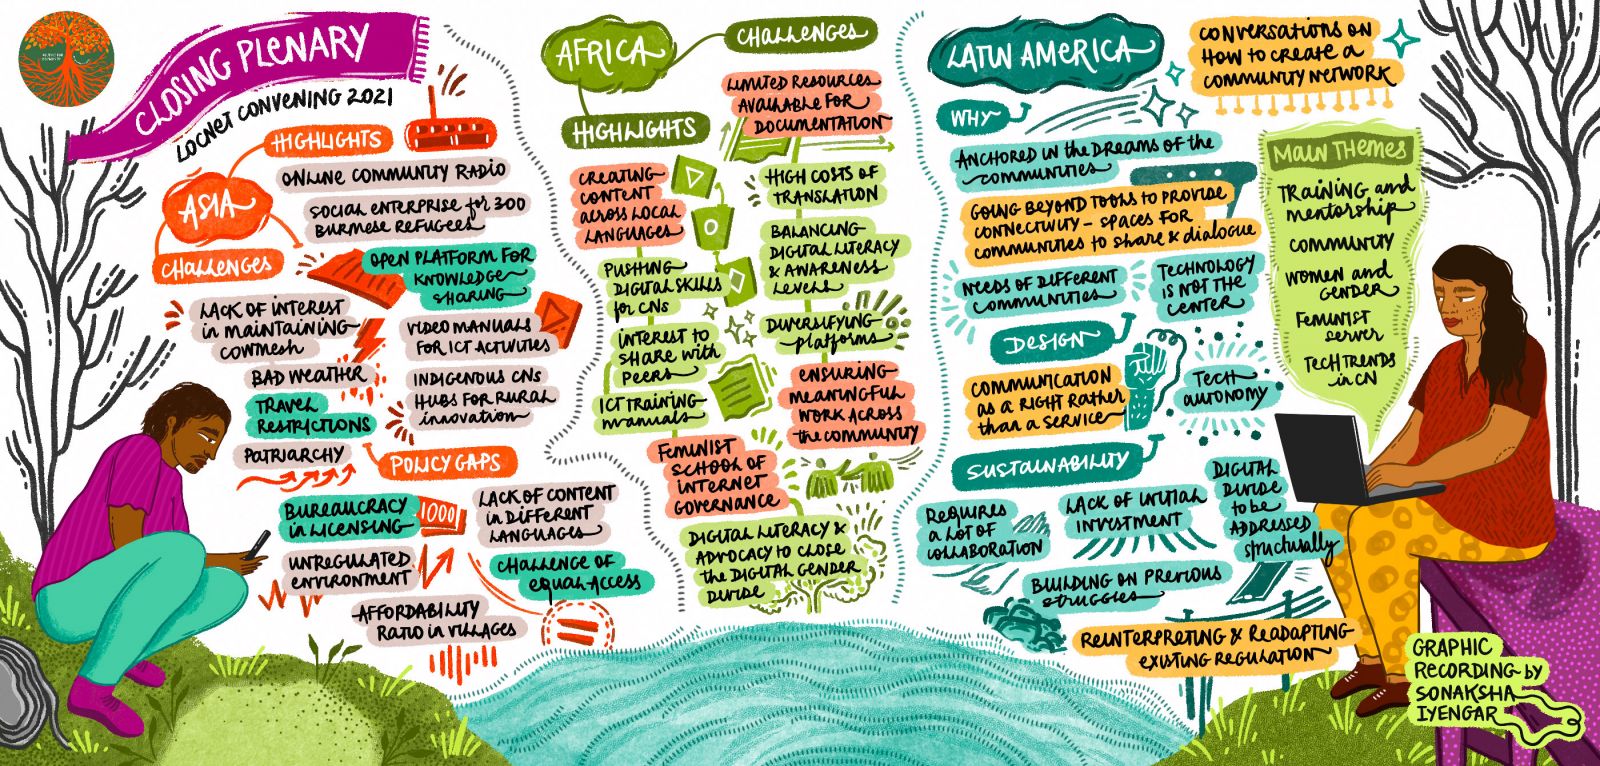 CLOSING PLENARY
LOCNET CONVENING 2021
HIGHLIGHTS
ONLINE COMMUNITY RADIO
ASIA
SOCIAL ENTERPRISE for 300
BURMESE REFUGEES
CHALLENGES
OPEN PLATFORM FOR
KNOWLEDGE
SHARING
LACK OF INTEREST
in MAINTAINING
COWMESH
VIDEO MANUALS
FOR ICT ACTIVITIES
BAD WEATHER
INDIGENOUS CNs
HUBS FOR RURAL
innovation
TRAVEL
RESTRICTIONS
PATRIARCHY
POLICY GAPS
BUREAUCRACY
in LICENSING
1000
LACK OF CONTENT
in DIFFERENT
LANGUAGES
UNREGULATED
ENVIRONMENT
CHALLENGE OF
EQUAL ACCESS
AFFORDABILITY
RATIO in VILLAGES
AFRICA
CHALLENGES
LIMITED RESOURCES
AVAILABLE FOR
DOCUMENTATION
HIGHLIGHTS
CREATING
CONTENT
ACROSS LOCAL
LANGUAGES
HIGH COSTS OF
TRANSLATION
PUSHING
DIGITAL SKILLS
for CNs
BALANCING
DIGITAL LITERACY
& AWARENESS
LEVELS
INTEREST TO
SHARE WITH
PEERS
DIVERSIFYING
platforms
ICT TRAINING
manuals
ENSURING
MEANINGFUL
WORK ACROSS
the COMMUNITY
FEMINIST
SCHOOL OF
INTERNET
GOVERNANCE
DIGITAL LITERACY &
ADVOCACY TO CLOSE
the DIGITAL GENDER
DIVIDE
LATIN AMERICA
CONVERSATIONS ON
HOW TO CREATE A
COMMUNITY NETWORK
WHY
ANCHORED IN the DREAMS OF the
COMMUNITIES
GOING BEYOND TOOLS TO PROVIDE
CONNECTIVITY - SPACES FOR
COMMUNITIES to SHARE & dialogue
NEEDS OF DIFFERENT
COMMUNITIES
TECHNOLOGY
IS NOT THE
CENTER
DESIGN
COMMUNICATION
as a RIGHT RATHER
than a SERVICE
TECH
AUTONOMY
SUSTAINABILITY
REQUIRES
A LOT OF
COLLABORATION
LACK OF INITIAL
INVESTMENT
DIGITAL
DIVIDE
to be
ADDRESSED
structurally
BUILDING ON PREVIOUS
STRUGGLES
REINTERPRETING & READAPTING
EXISTING REGULATION
MAIN THEMES
TRAINING and
mentorship
COMMUNITY
WOMEN and
GENDER
FEMINIST
SERVER
TECH TRENDS
in CN
GRAPHIC
RECORDING by
SONAKSHA
IYENGAR